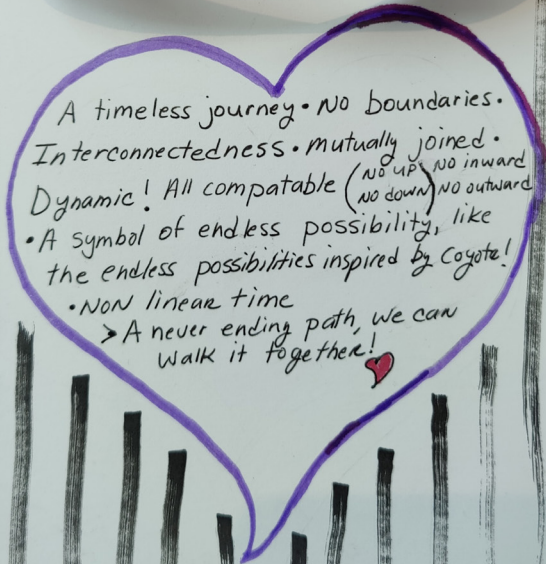 A timeless journey • No boundaries •
Interconnectedness • mutually joined •
Dynamic! All compatable (No up No down) No inward No outward
• A symbol of endless possibility, like
the endless possibilities inspired by Coyote!
• NON linear time
> A never ending path, we can
walk it together!